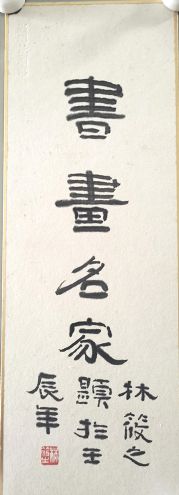 書畫名家
林筱之
題於壬
辰年